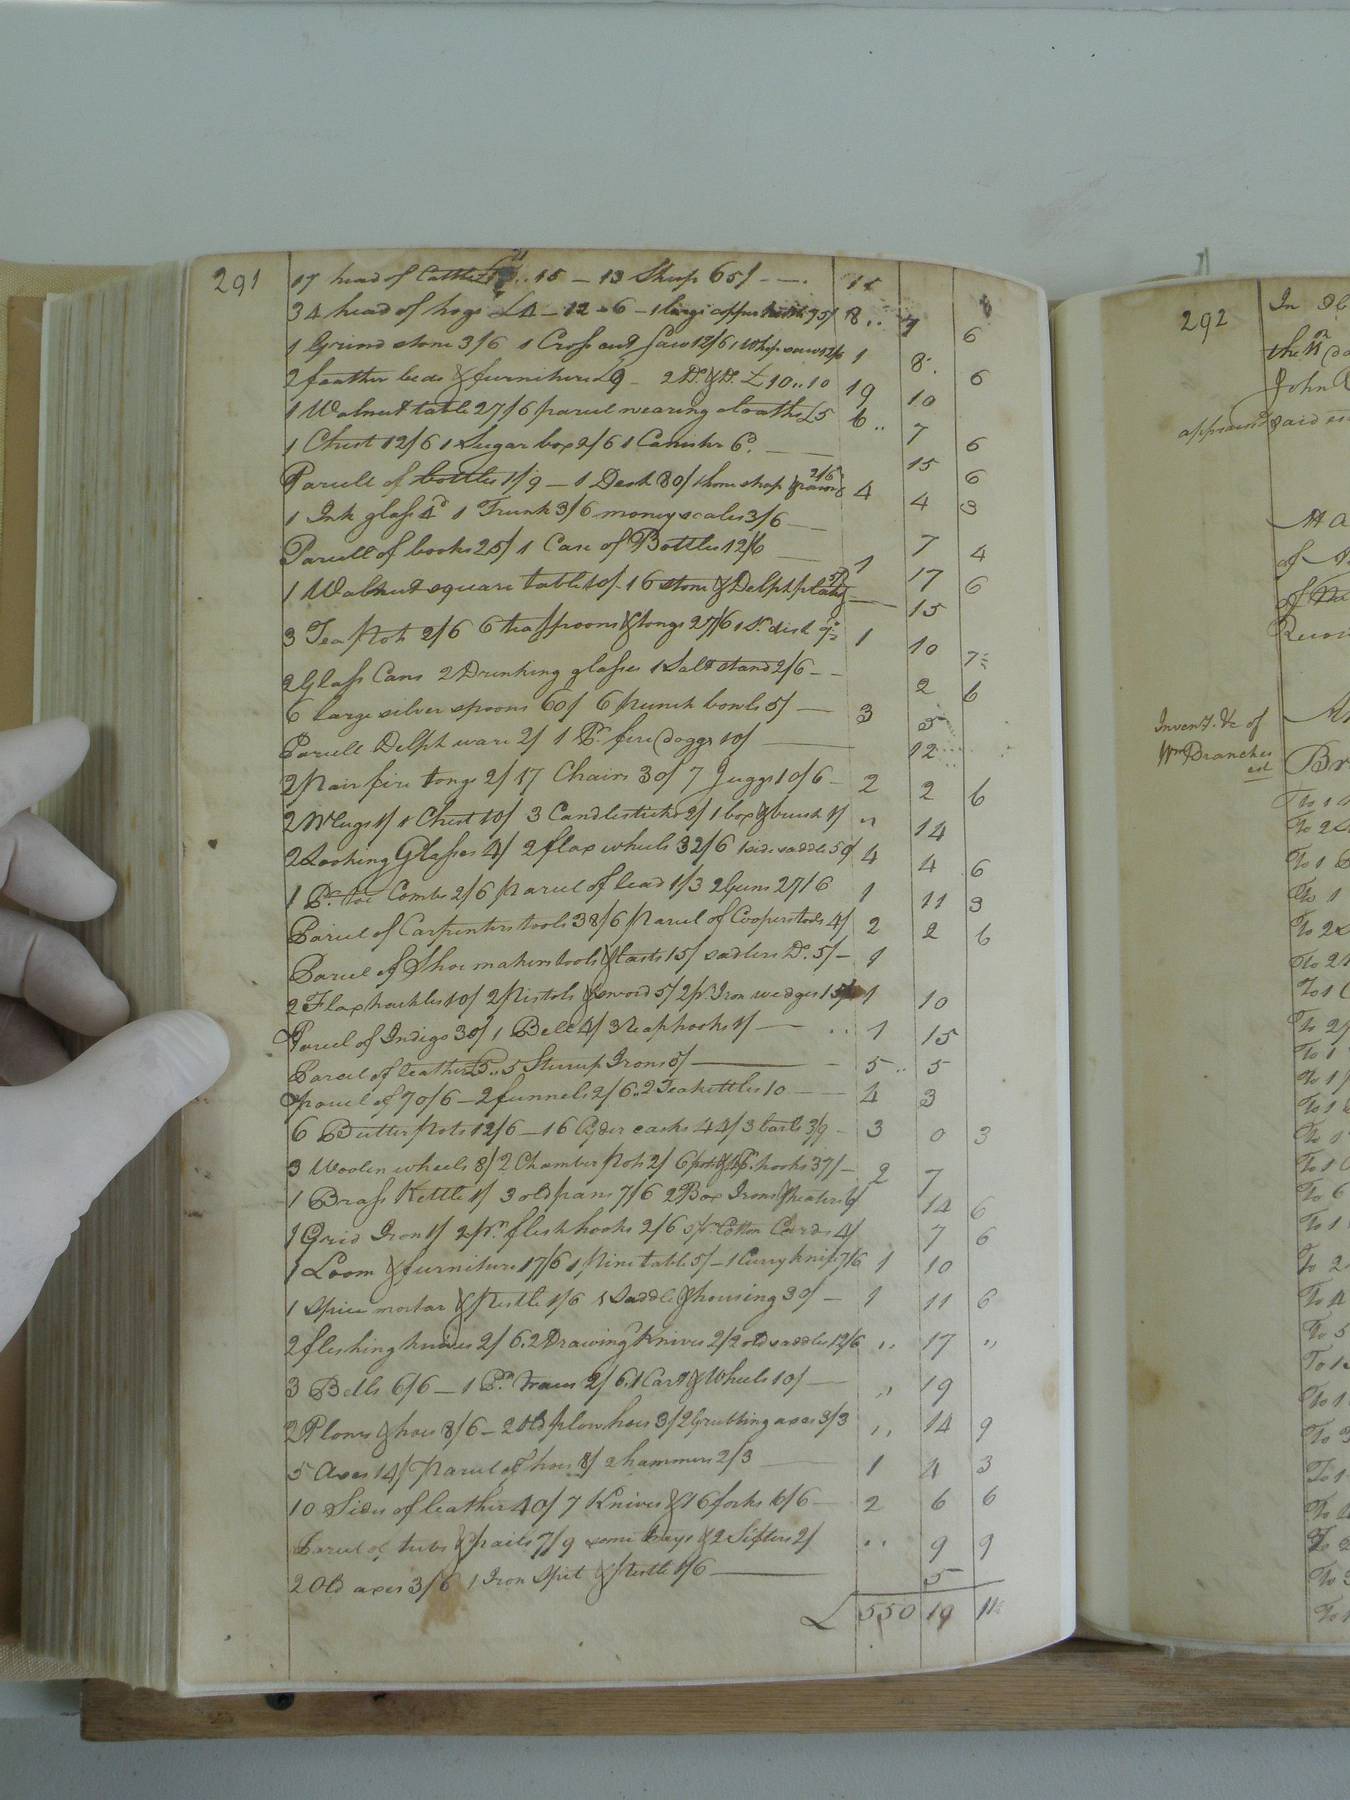 291
17 head of Cattle £ .. 15 — 13 Sheep 65/ — 
34 head of hogs £4 — 12 — 6 — 1 large Copper 75/ 8 .. 7 6
1 Grind stone 3/6 1 Cross cut Saw 12/6 1 Whip saw 12/6 1 8 6
2 feather beds & furniture £9 — 2 Do. & Do. £10..10 19 10
1 Walnut table 27/6 parcel wearing cloaths £5 6 .. 7 6
1 Chest 12/6 1 Sugar box 2/6 1 Canister 6d. — 15 6
Parcell of bottles 1/9 — 1 Desk 80/ 1 hone strap & razors 2/6 4 4 3
1 Ink glass 4d 1 Trunk 3/6 money scales 3/6 — 7 4
Parcell of books 25/ 1 Case of Bottles 12/6 — 1 17 6
1 Walnut square table 10/ 16 stone & Delph plates 5/ — 15
3 Tea Pots 2/6 6 tea spoons & tongs 27/6 1 dish 1 10 7
2 Glass Cans 2 Drinking glasses 1 Salt stand 2/6 — 2 6
6 large silver spoons 60/ 6 punch bowls 5/ — 3 5
Parcell Delph ware 2/ 1 Pr. fire doggs 10/ — 12
2 Pair fire tongs 2/ 17 Chairs 30/ 7 Juggs 10/6 — 2 2 6
2 Mugs 1/ 1 Chest 10/ 3 Candlesticks 2/ 1 box & brush 1/ " 14
2 Looking Glasses 4/ 2 flax wheels 32/6 1 side saddle 50/ 4 4 6
1 Pr. Combs 2/6 parcel of lead 1/3 2 Guns 27/6 1 11 3
Parcel of Carpenters tools 38/6 Parcel of Coopers tools 4/ 2 2 6
Parcel of Shoe makers tools & lasts 15/ sadlers Do. 5/ — 1
2 Flax hackles 10/ 2 Pistols & sword 5/ 2 pr. Iron wedges 15/ 1 10
Parcel of Indigo 30/ 1 Bell 4/ 3 Reaphooks 1/ — .. 1 15
Parcel of leather £5 .. 5 Stirrup Irons 5/ — 5 .. 5
Parcel of 70/6 — 2 funnels 2/6 .. 2 Teakettles 10 — 4 3
6 Butter Pots 12/6 — 16 Cyder casks 44/ 3 3/9 — 3 0 3
3 Woolen wheels 8/ 2 Chamber Pots 2/ 6 pots & hooks 37/ — 2 7
1 Brass Kettle 1/ 3 old pans 7/6 2 Box Irons & heaters 6/ 14 6
1 Grid Iron 1/ 2 pr. flesh hooks 2/6 pr. Cotton Cards 4/ 7 6
1 Loom & furniture 17/6 1 Pine table 5/ — 1 Curry knife 7/6 1 10
1 Spice mortar & Pestle 1/6 1 Saddle & housing 30/ — 1 11 6
2 fleshing knives 2/6. 2 Drawing Knives 2/ 2 old saddles 12/6 ,, 17 "
3 Bells 6/6 — 1 Pr. 2/6. 1 Cart & Wheels 10/ — ,, 19
2 Plows & hoes 8/6 — 2 old plow hoes 3/ 2 Grubbing axes 3/3 ,, 14 9
5 Axes 14/ Parcel of hoes 8/ 2 hammers 2/3 — 1 4 3
10 Sides of leather 40/ 7 Knives & 6 forks 6/6 — 2 6 6
Parcel of tubs & pails 7/9 some trays & 2 Sifters 2/ .. 9 9
2 Old axes 3/6 1 Iron Spit & Pestle 1/6 — 5
£ 550 19
292
In
the
John
appraisd said
At a
of
of
Recor
Invent. &c of
Wm Branches
est
Br
To 1
To 2
To 1
To 1
To 2
To 2
To 1
To 2
To 1
To 1
To 1
To 1
To 1
To 6
To 1
To 2
To 4
To 5
To 1
To 1
To 3
To 1